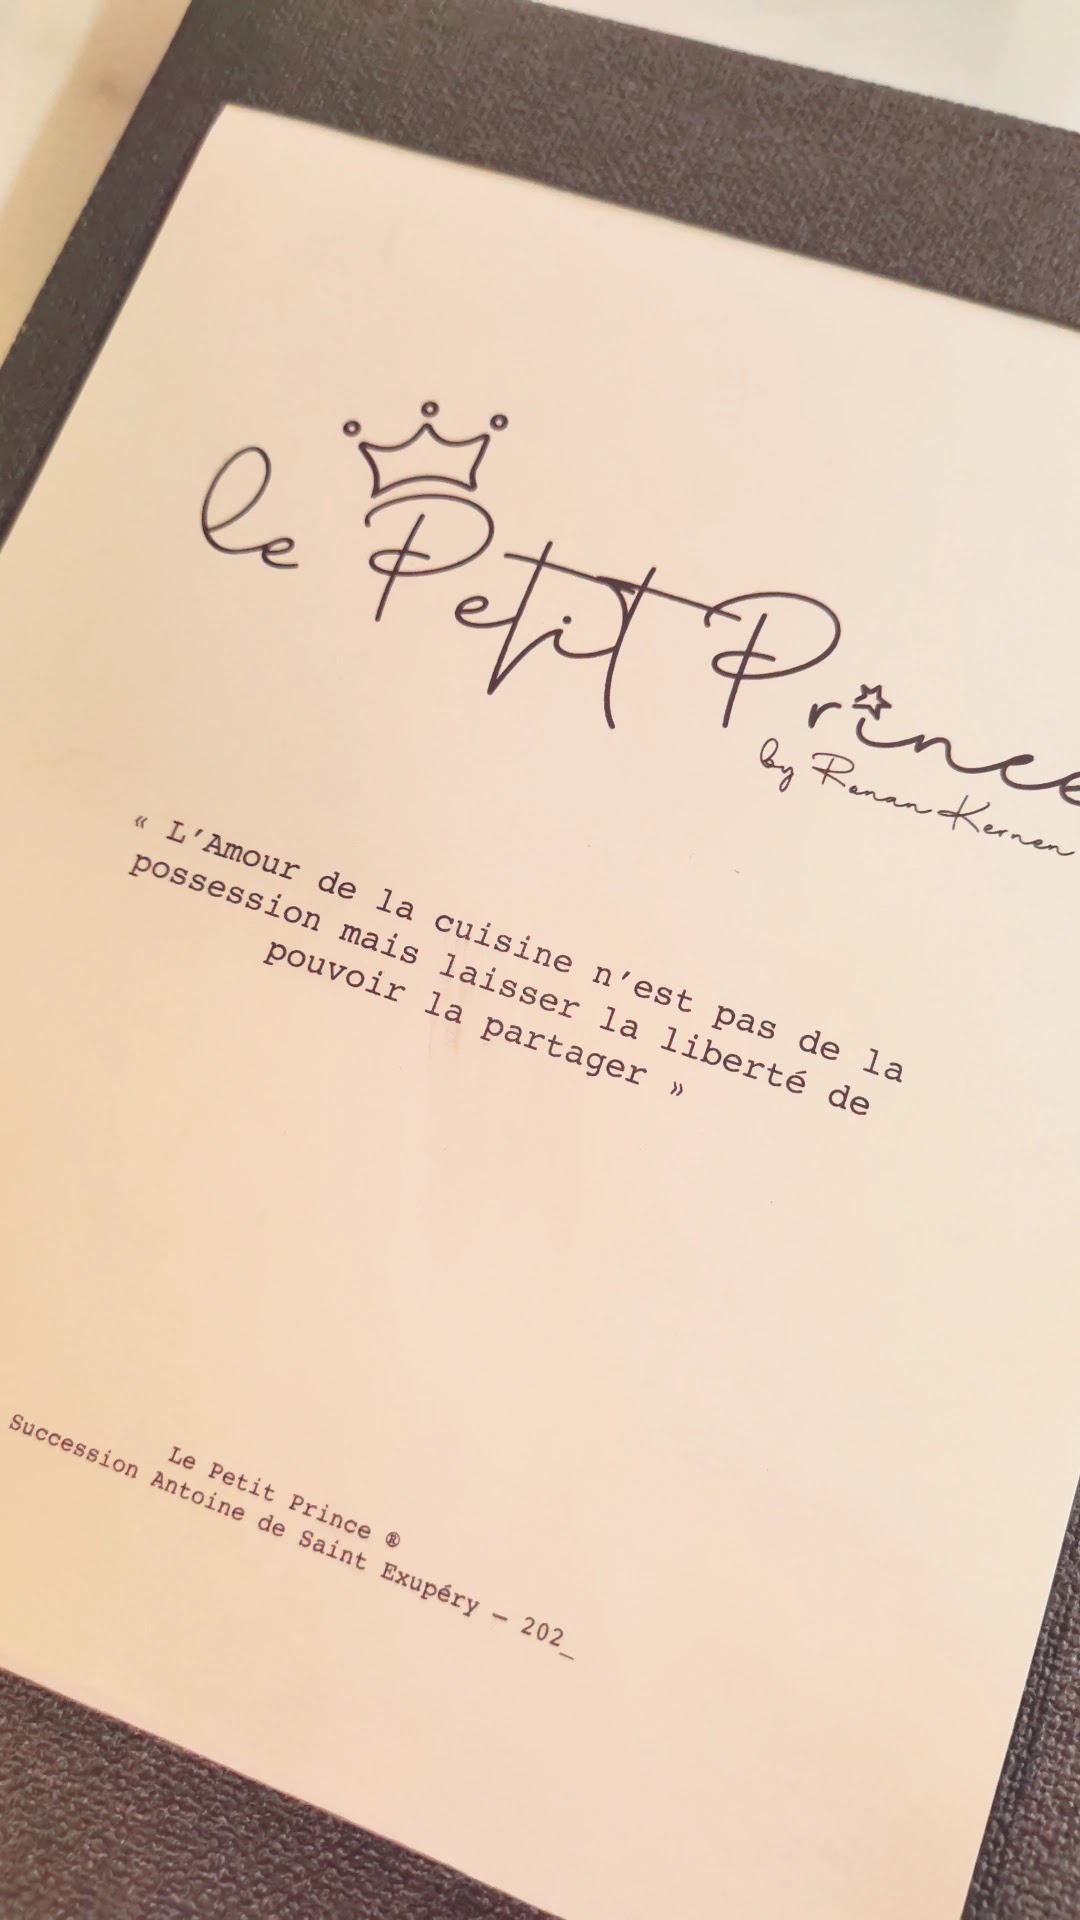 le Petit Prince
by Ronan Kernen
« L’Amour de la cuisine n’est pas de la
possession mais laisser la liberté de
pouvoir la partager »
Le Petit Prince ®
Succession Antoine de Saint Exupéry – 202_